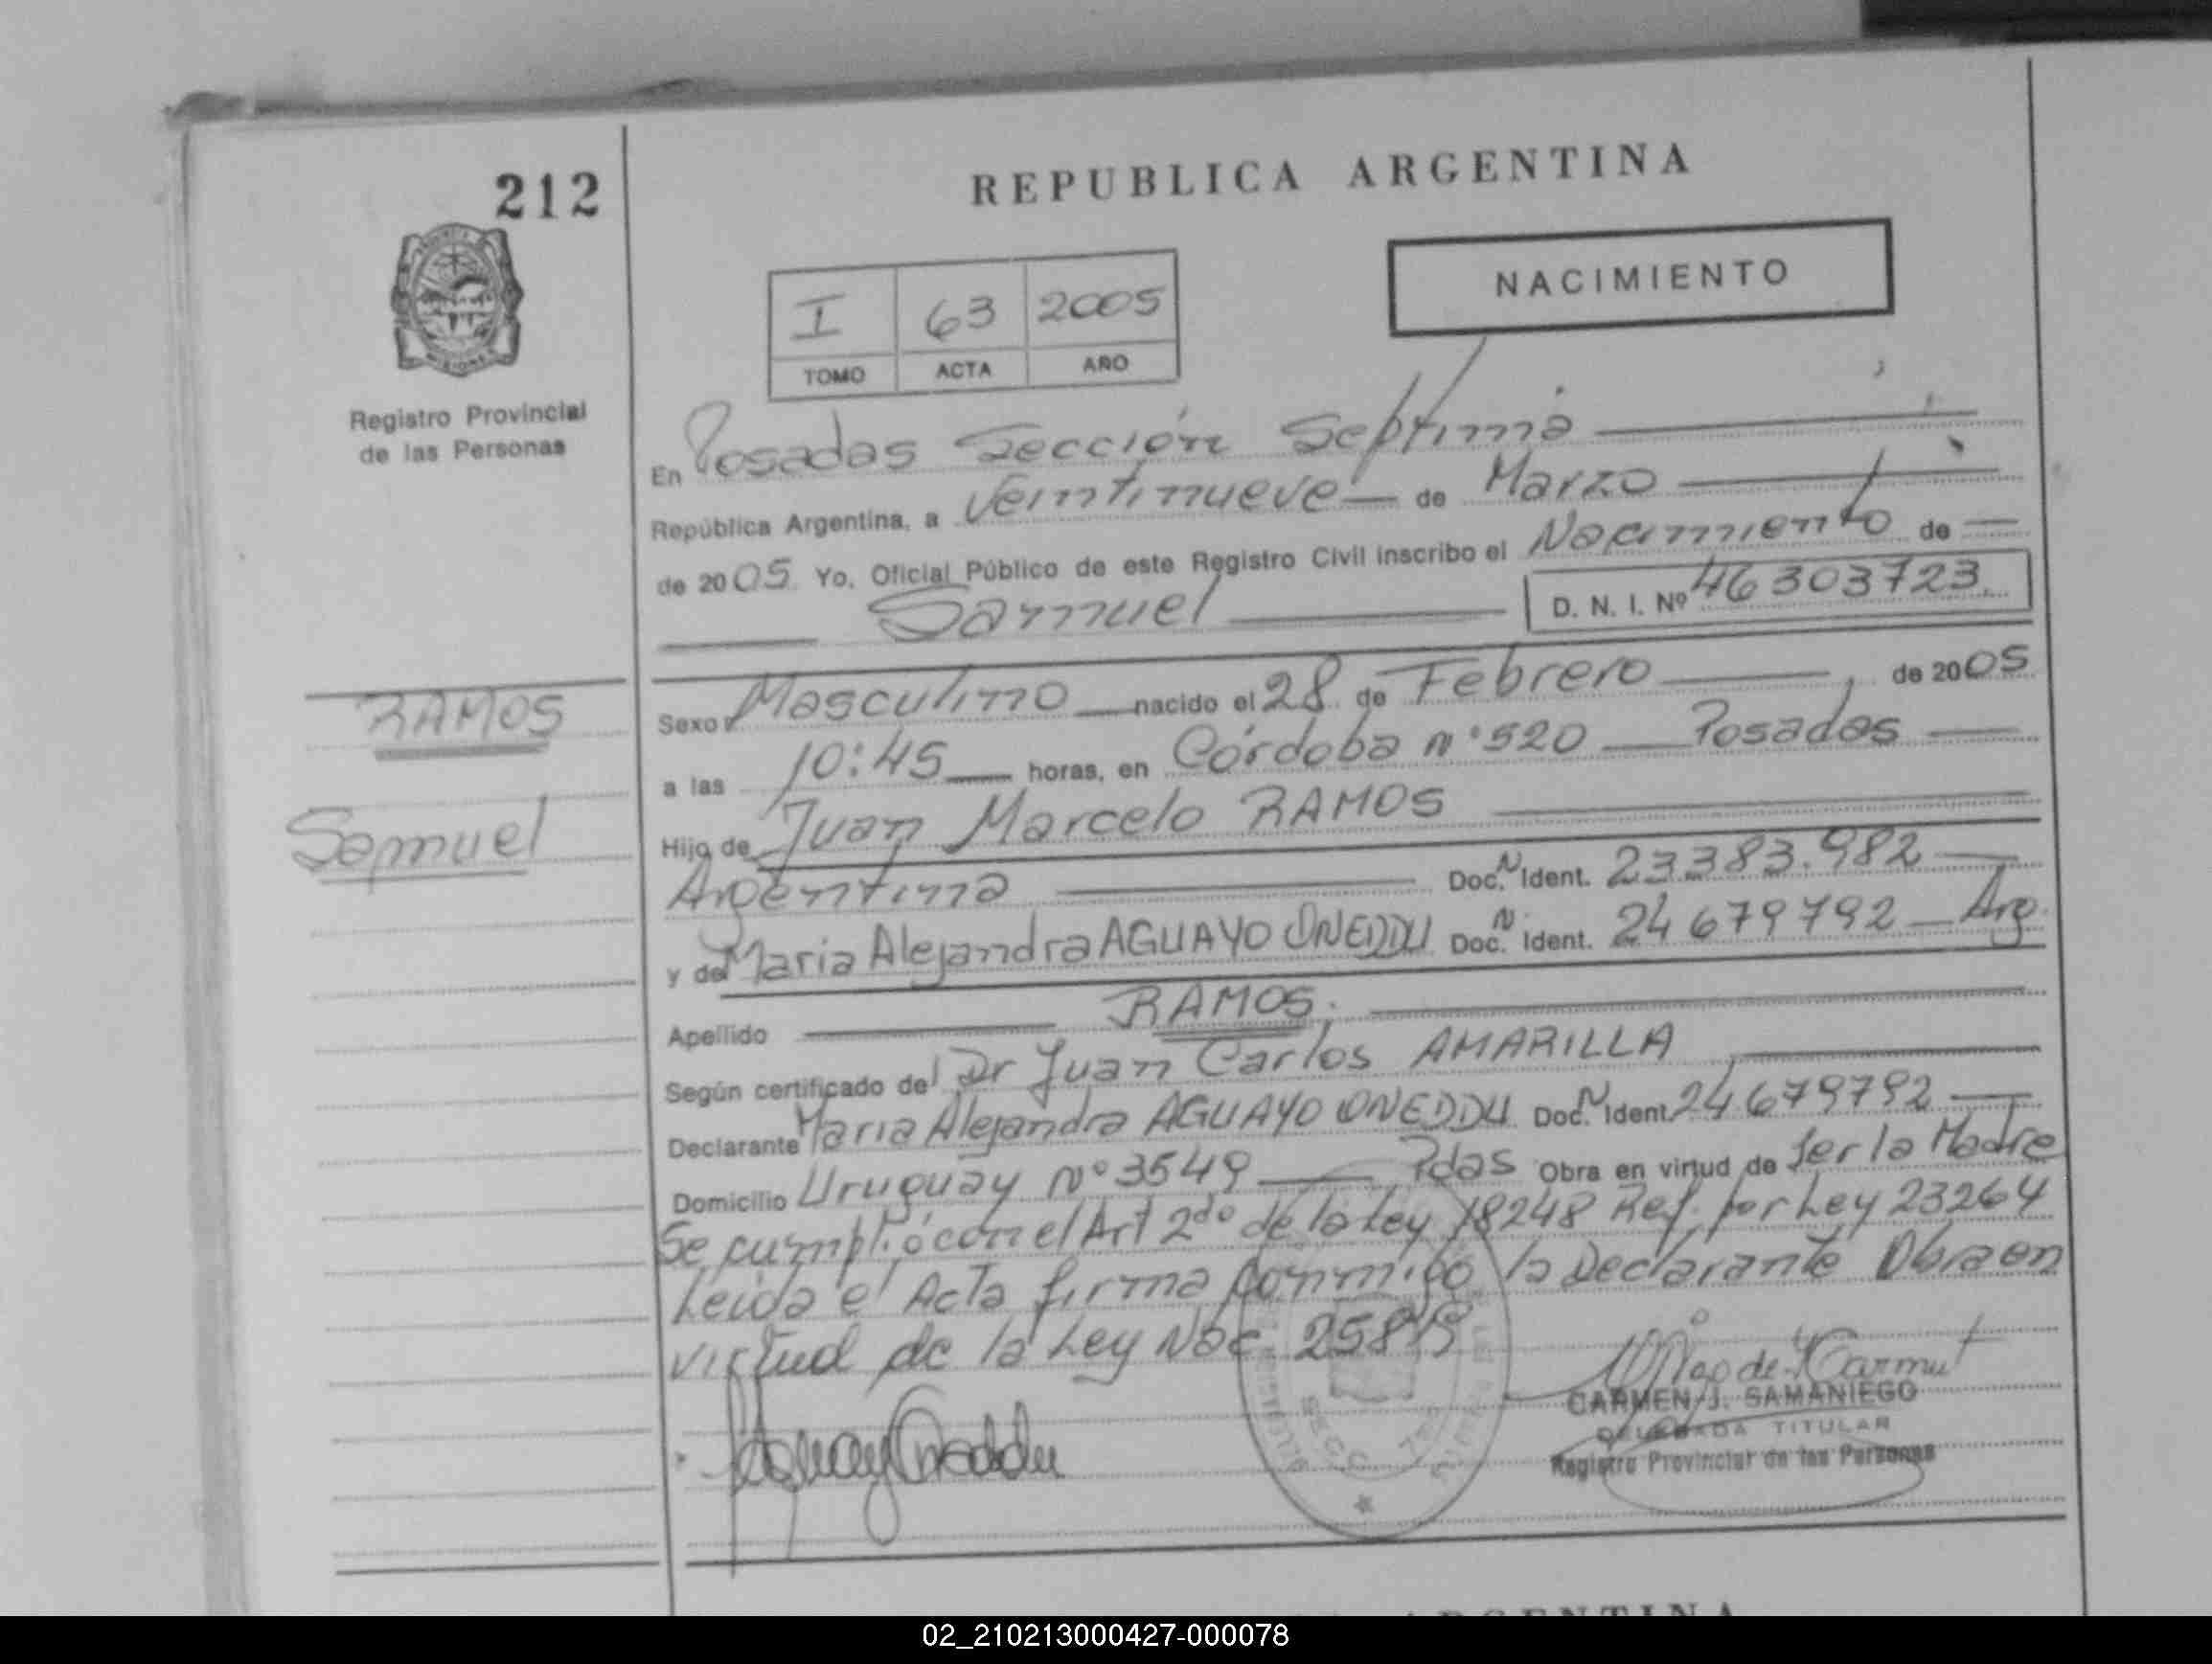 212
REPUBLICA ARGENTINA
NACIMIENTO
I 63 2005
TOMO ACTA AÑO
Registro Provincial
de las Personas
En Posadas Sección Septima
República Argentina, a Veintinueve de Marzo
de 2005 Yo, Oficial Público de este Registro Civil inscribo el Nacimiento de
Samuel D. N. I. Nº 46 303723
RAMOS
Samuel
Sexo Masculino nacido el 28 de Febrero, de 2005
a las 10:45 horas, en Córdoba nº 520 Posadas
Hijo de Juan Marcelo RAMOS
Argentina Doc. N Ident. 23383.982
y de Maria Alejandra AGUAYO ONEDDU Doc. N Ident. 24 679792 Arg.
Apellido RAMOS.
Según certificado del Dr Juan Carlos AMARILLA
Declarante Maria Alejandra AGUAYO ONEDDU Doc. N Ident. 24 679792
Domicilio Uruguay Nº 3549 Pdas Obra en virtud de Ser la Madre
Se cumplió con el Art 2do de la Ley 18248 Ref. por Ley 23264
Leida el Acta firma conmigo la Declarante Obra en
virtud de la Ley Nac
CARMEN J. SAMANIEGO
DELEGADA TITULAR
Registro Provincial de las Personas
SECC. 7
ARGENTINA
02_210213000427-000078